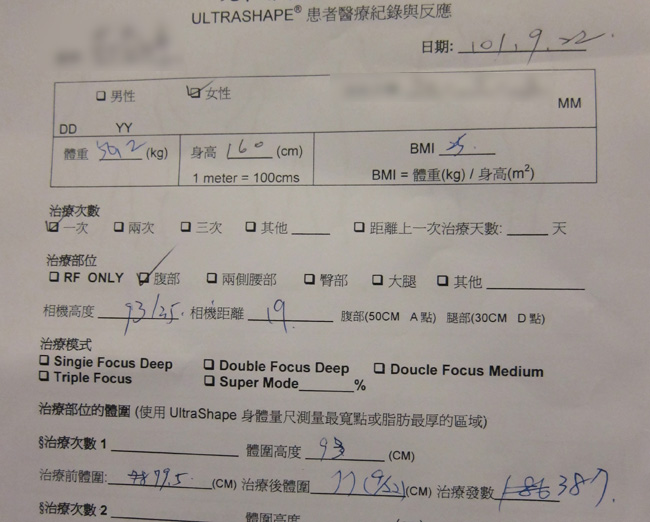 ULTRASHAPE® 患者醫療紀錄與反應
日期: 101.9.22
☐ 男性 ☑ 女性
MM
DD YY
體重 59.2 (kg) 身高 160 (cm) BMI
1 meter = 100cms BMI = 體重(kg) / 身高(m²)
治療次數
☑ 一次 ☐ 兩次 ☐ 三次 ☐ 其他 ☐ 距離上一次治療天數: 天
治療部位
☐ RF ONLY ☑ 腹部 ☐ 兩側腰部 ☐ 臀部 ☐ 大腿 ☐ 其他
相機高度 93/35 相機距離 19 腹部(50CM A點) 腿部(30CM D點)
治療模式
☐ Single Focus Deep ☐ Double Focus Deep ☐ Doucle Focus Medium
☐ Triple Focus ☐ Super Mode %
治療部位的體圍 (使用 UltraShape 身體量尺測量最寬點或脂肪最厚的區域)
§治療次數 1 體圍高度 93 (CM)
治療前體圍: 79.5 (CM) 治療後體圍 77 (9/22) (CM) 治療發數 387
§治療次數 2 體圍高度 (CM)